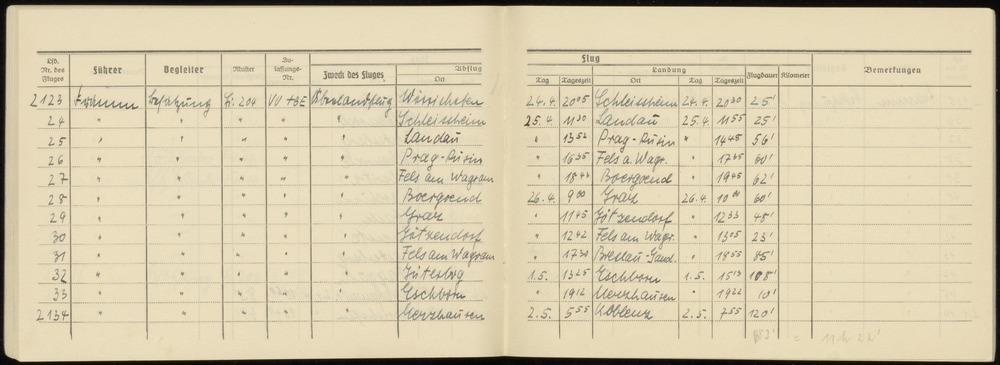 Lfd. Nr. des Fluges Führer Begleiter Muster Zulassungs-Nr. Zweck des Fluges Abflug Ort Tag Tageszeit Flug Landung Ort Tag Tageszeit Flugdauer Kilometer Bemerkungen
2123 Besatzung Si. 204 VV +BE Überlandflug Wörishofen 24.4. 20 05 Schleissheim 24.4. 20 30 25'
24 " " " " " Schleissheim 25.4. 11 30 Landau 25.4. 11 55 25'
25 " " " " " Landau " 13 52 Prag-Rusin " 14 48 56'
26 " " " " " Prag-Rusin " 16 35 Fels a. Wagr. " 17 35 60'
27 " " " " " Fels am Wagram " 18 43 Boergoend " 19 45 62'
28 " " " " " Boergoend 26.4. 9 00 Graz 26.4. 10 00 60'
29 " " " " " Graz " 11 45 Götzendorf " 12 33 48'
30 " " " " " Götzendorf " 12 42 Fels am Wagr. " 13 05 23'
31 " " " " " Fels am Wagram " 17 30 Breslau-Gand. " 18 55 85'
32 " " " " " Jüterbog 1.5. 13 25 Eschborn 1.5. 15 13 108'
33 " " " " " Eschborn " 19 12 Merzhausen " 19 22 10'
2134 " " " " " Merzhausen 2.5. 5 55 Koblenz 2.5. 7 55 120'
= 11 h 22'